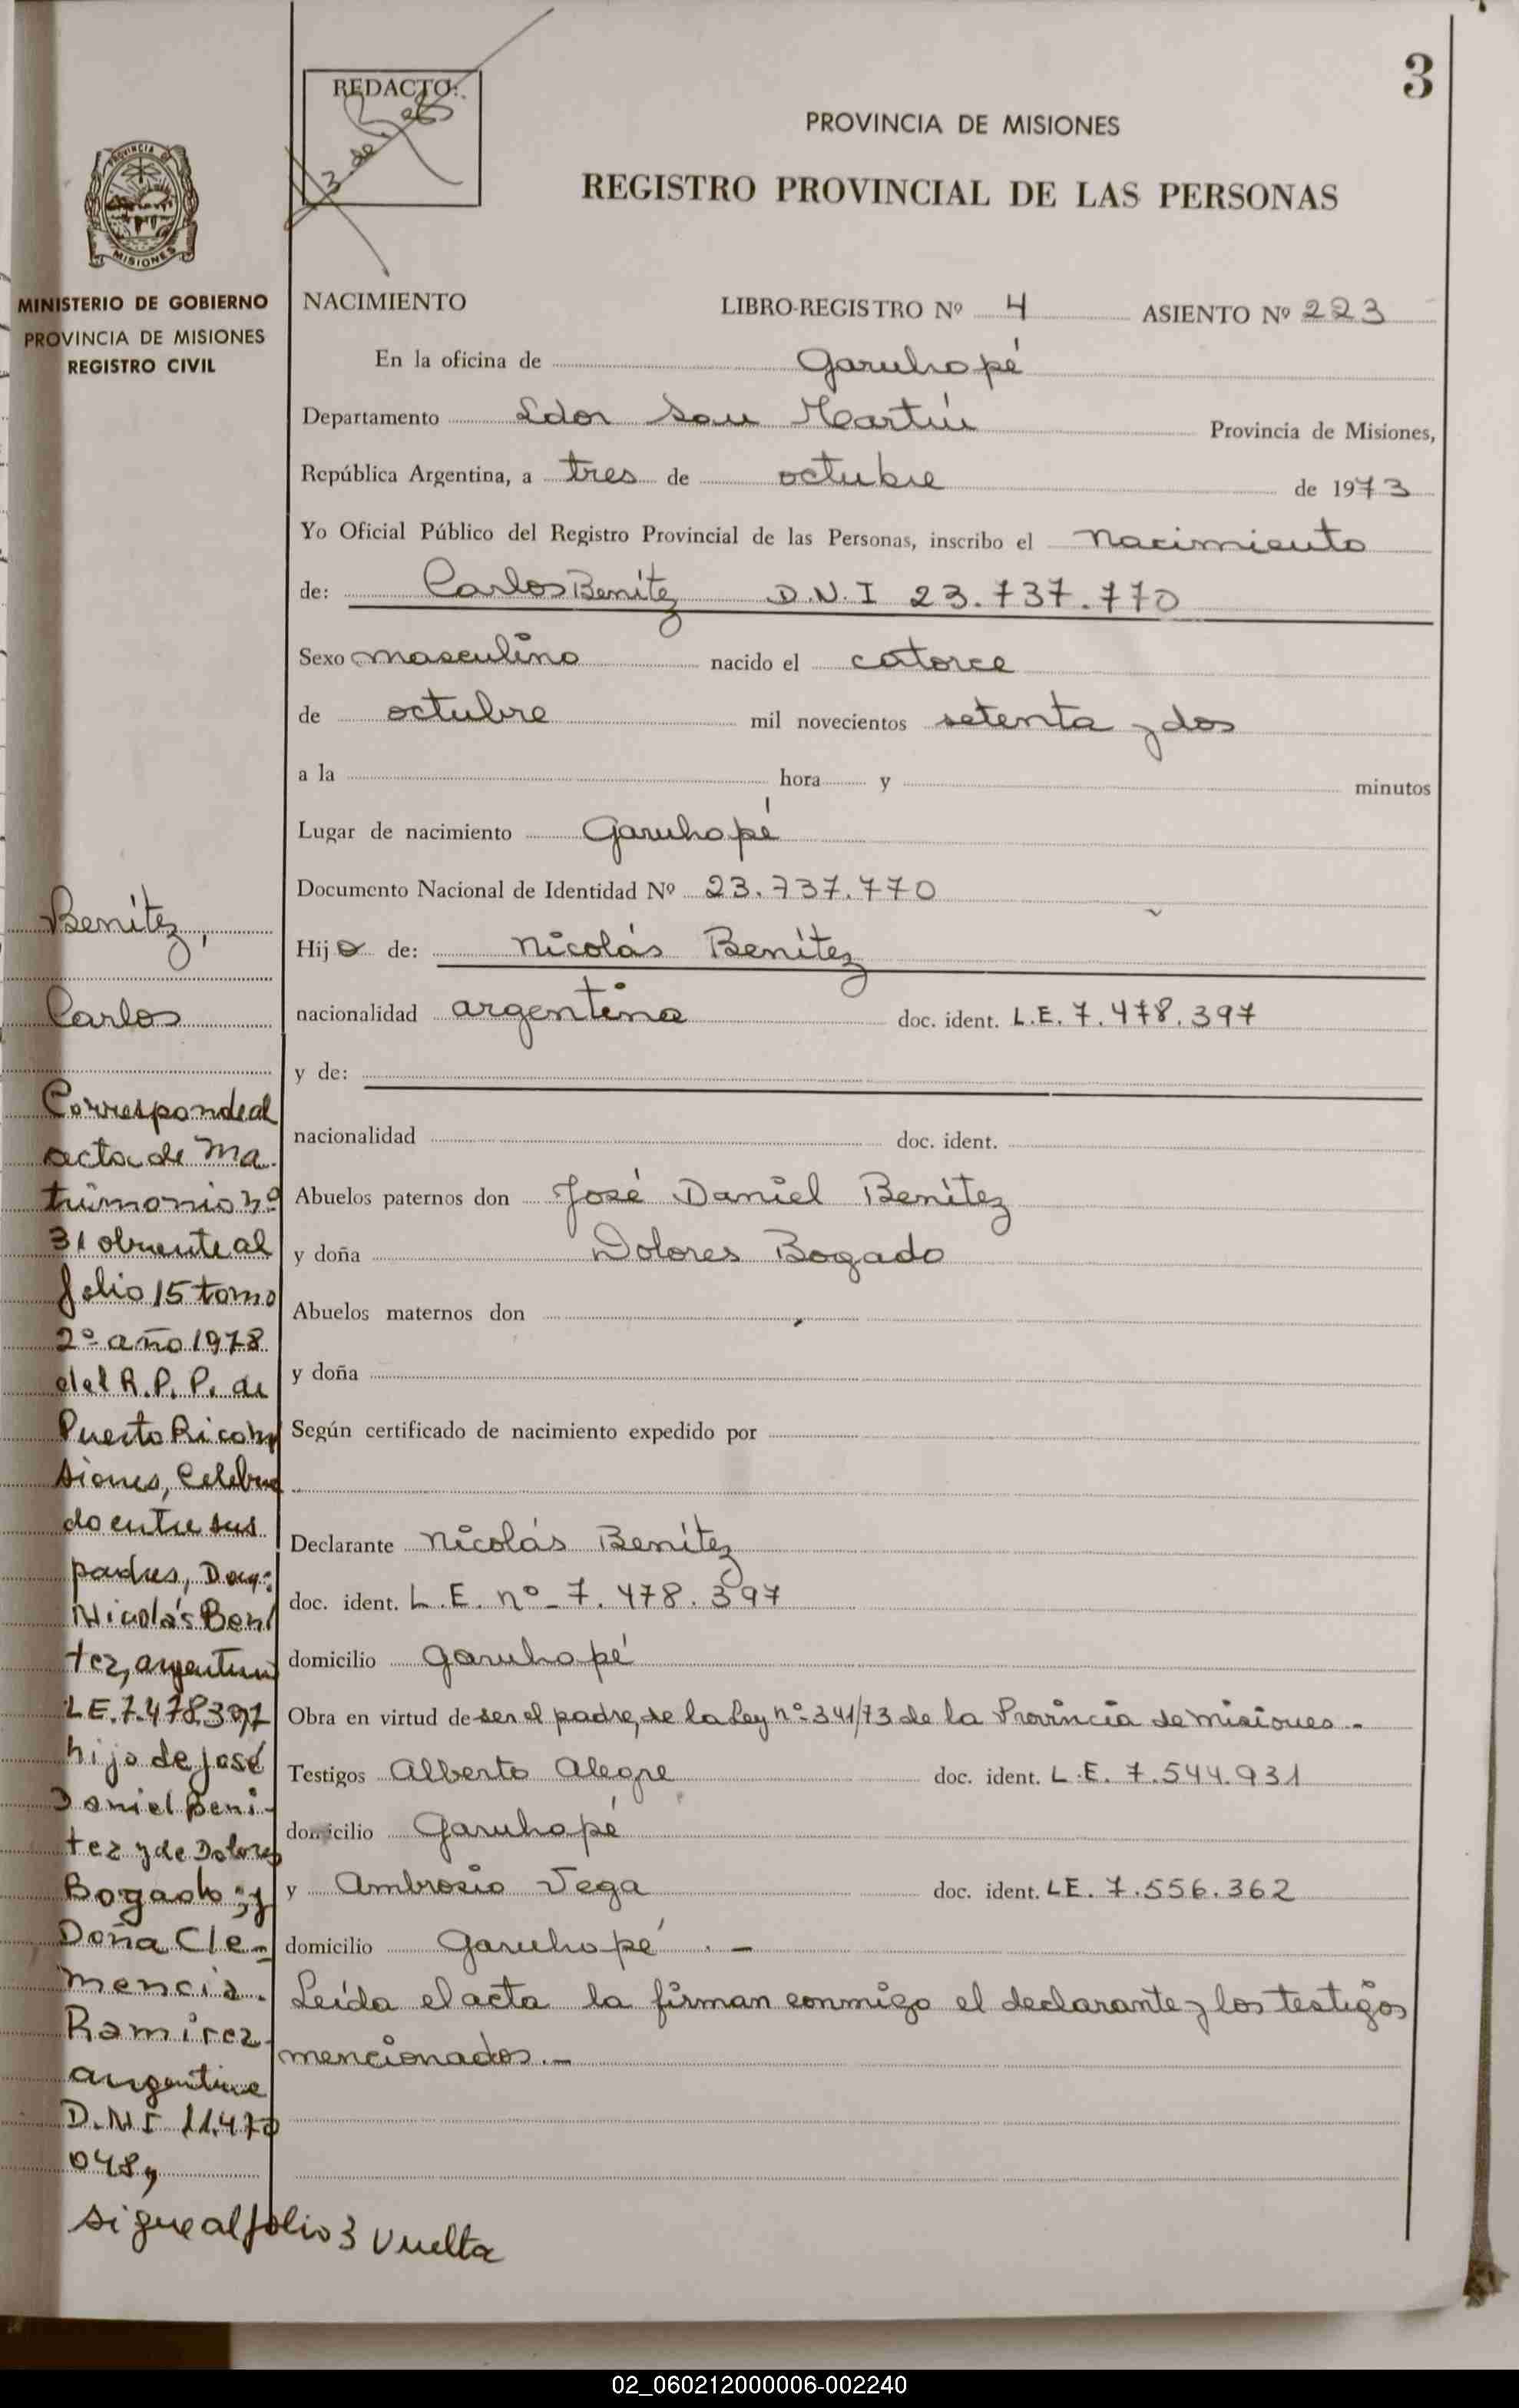 3
REDACTO:
3 de
PROVINCIA DE MISIONES
REGISTRO PROVINCIAL DE LAS PERSONAS
PROVINCIA DE
MISIONES
MINISTERIO DE GOBIERNO
PROVINCIA DE MISIONES
REGISTRO CIVIL
NACIMIENTO LIBRO-REGISTRO Nº 4 ASIENTO Nº 223
En la oficina de Garuhapé
Departamento Ldor San Martín Provincia de Misiones,
República Argentina, a tres de octubre de 1973
Yo Oficial Público del Registro Provincial de las Personas, inscribo el nacimiento
de: Carlos Benítez D.N.I 23.737.770
Sexo masculino nacido el catorce
de octubre mil novecientos setenta y dos
a la hora y minutos
Lugar de nacimiento Garuhapé
Documento Nacional de Identidad Nº 23.737.770
Hijo de: Nicolás Benítez
nacionalidad argentina doc. ident. L.E. 7.478.397
y de:
nacionalidad doc. ident.
Abuelos paternos don José Daniel Benítez
y doña Dolores Bogado
Abuelos maternos don
y doña
Según certificado de nacimiento expedido por
Declarante Nicolás Benítez
doc. ident. L.E. nº- 7.478.397
domicilio Garuhapé
Obra en virtud de ser el padre, de la Ley nº-341/73 de la Provincia de Misiones.-
Testigos Alberto Alegre doc. ident. L.E. 7.544.931
domicilio Garuhapé
y Ambrosio Vega doc. ident. LE. 7.556.362
domicilio Garuhapé .-
Leída el acta la firman conmigo el declarante y los testigos
mencionados.-
Benítez,
Carlos
Corresponde al
acta de Ma
trimonio nº
31 obrente al
folio 15 tomo
2º año 1978
del R.P.P. de
Puerto Rico Mi
siones, Celebra
do entre sus
padres, Don:
Nicolás Bení
tez, argentino
L.E. 7.478.397
hijo de José
Daniel Beni-
tez y de Dolores
Bogado; y
Doña Cle-
mencia.
Ramirez
argentina
D.N.I 11.470
048,
sigue al folio 3 vuelta
02_060212000006-002240